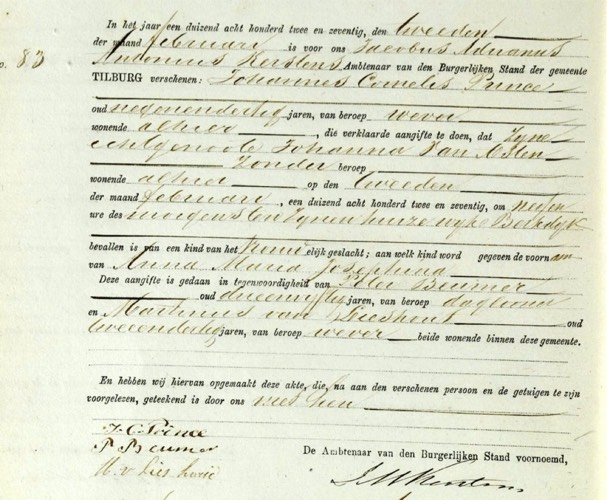 In het jaar een duizend acht honderd twee en zeventig, den tweeden
der maand februari is voor ons Jacobus Adrianus
No. 83 Antonius Kerstens Ambtenaar van den Burgerlijken Stand der gemeente
TILBURG verschenen: Johannes Cornelis Prince
oud negenendertig jaren, van beroep wever
wonende alhier, die verklaarde aangifte te doen, dat Zyne
echtgenoote Johanna Van Osten
Zonder beroep
wonende alhier op den tweeden
der maand februari, een duizend acht honderd twee en zeventig, om negen
ure des morgens ten Zynen huize wyk
bevallen is van een kind van het vrouwelijk geslacht; aan welk kind word gegeven de voornam
van Anna Maria Josephina
Deze aangifte is gedaan in tegenwoordigheid van Peter Beumer
oud jaren, van beroep dagloner
en Martinus van Lieshout oud
tweeendertig jaren, van beroep wever beide wonende binnen deze gemeente.
En hebben wij hiervan opgemaakt deze akte, die, na aan den verschenen persoon en de getuigen te zijn
voorgelezen, geteekend is door ons met hen
J. C. Prince
P Beumer
M. v Lieshout
De Ambtenaar van den Burgerlijken Stand voornoemd,